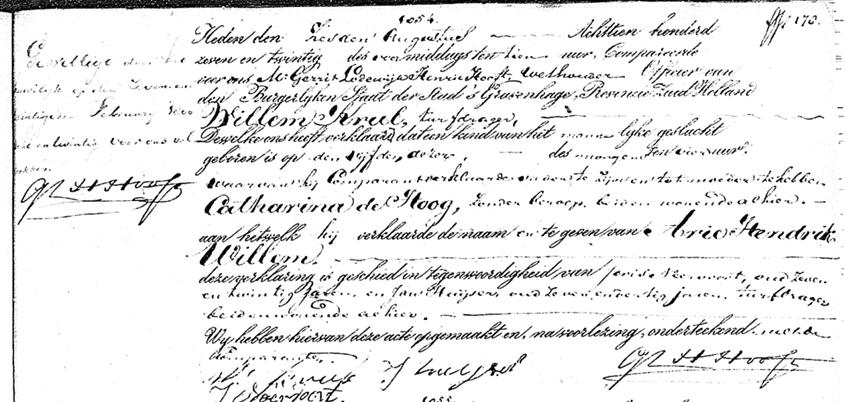 1054.
ffo 173.
Heden den zesden Augustus Achttien honderd
zeven en twintig des voormiddags ten tien uur, Compareerde
voor ons Mr Gerrit Lodewijk Henrie Hooft, Wethouder Officier van
den Burgerlyken Staat der Stad 's Gravenhage, Provincie Zuid Holland
Willem Krul, turfdrager,
Dewelke ons heeft verklaard dat een kind van het mannelyke geslacht
geboren is op den vyfden dezer, des morgens ten vier uur.
waarvan hy Comparant verklaarde vader te zyn en tot moeder te hebben
Catharina de Hoog, zonder beroep, beiden wonende alhier.
aan hetwelk hij verklaarde de naamen te geven van Arie Hendrik
Willem.
deze verklaring is geschied in tegenwoordigheid van Joris Vervoort, oud zeven
en twintig jaren, en Jan Huijser, oud zeven en dertig jaren, turfdrager
beiden wonende alhier.
Wy hebben hiervan deze acte opgemaakt en, na voorlezing, onderteekend, met de
Comparanten.
J Vervoort.
1055.
Februarij
en twintig voor ons
GLH Hooft
GLH Hooft